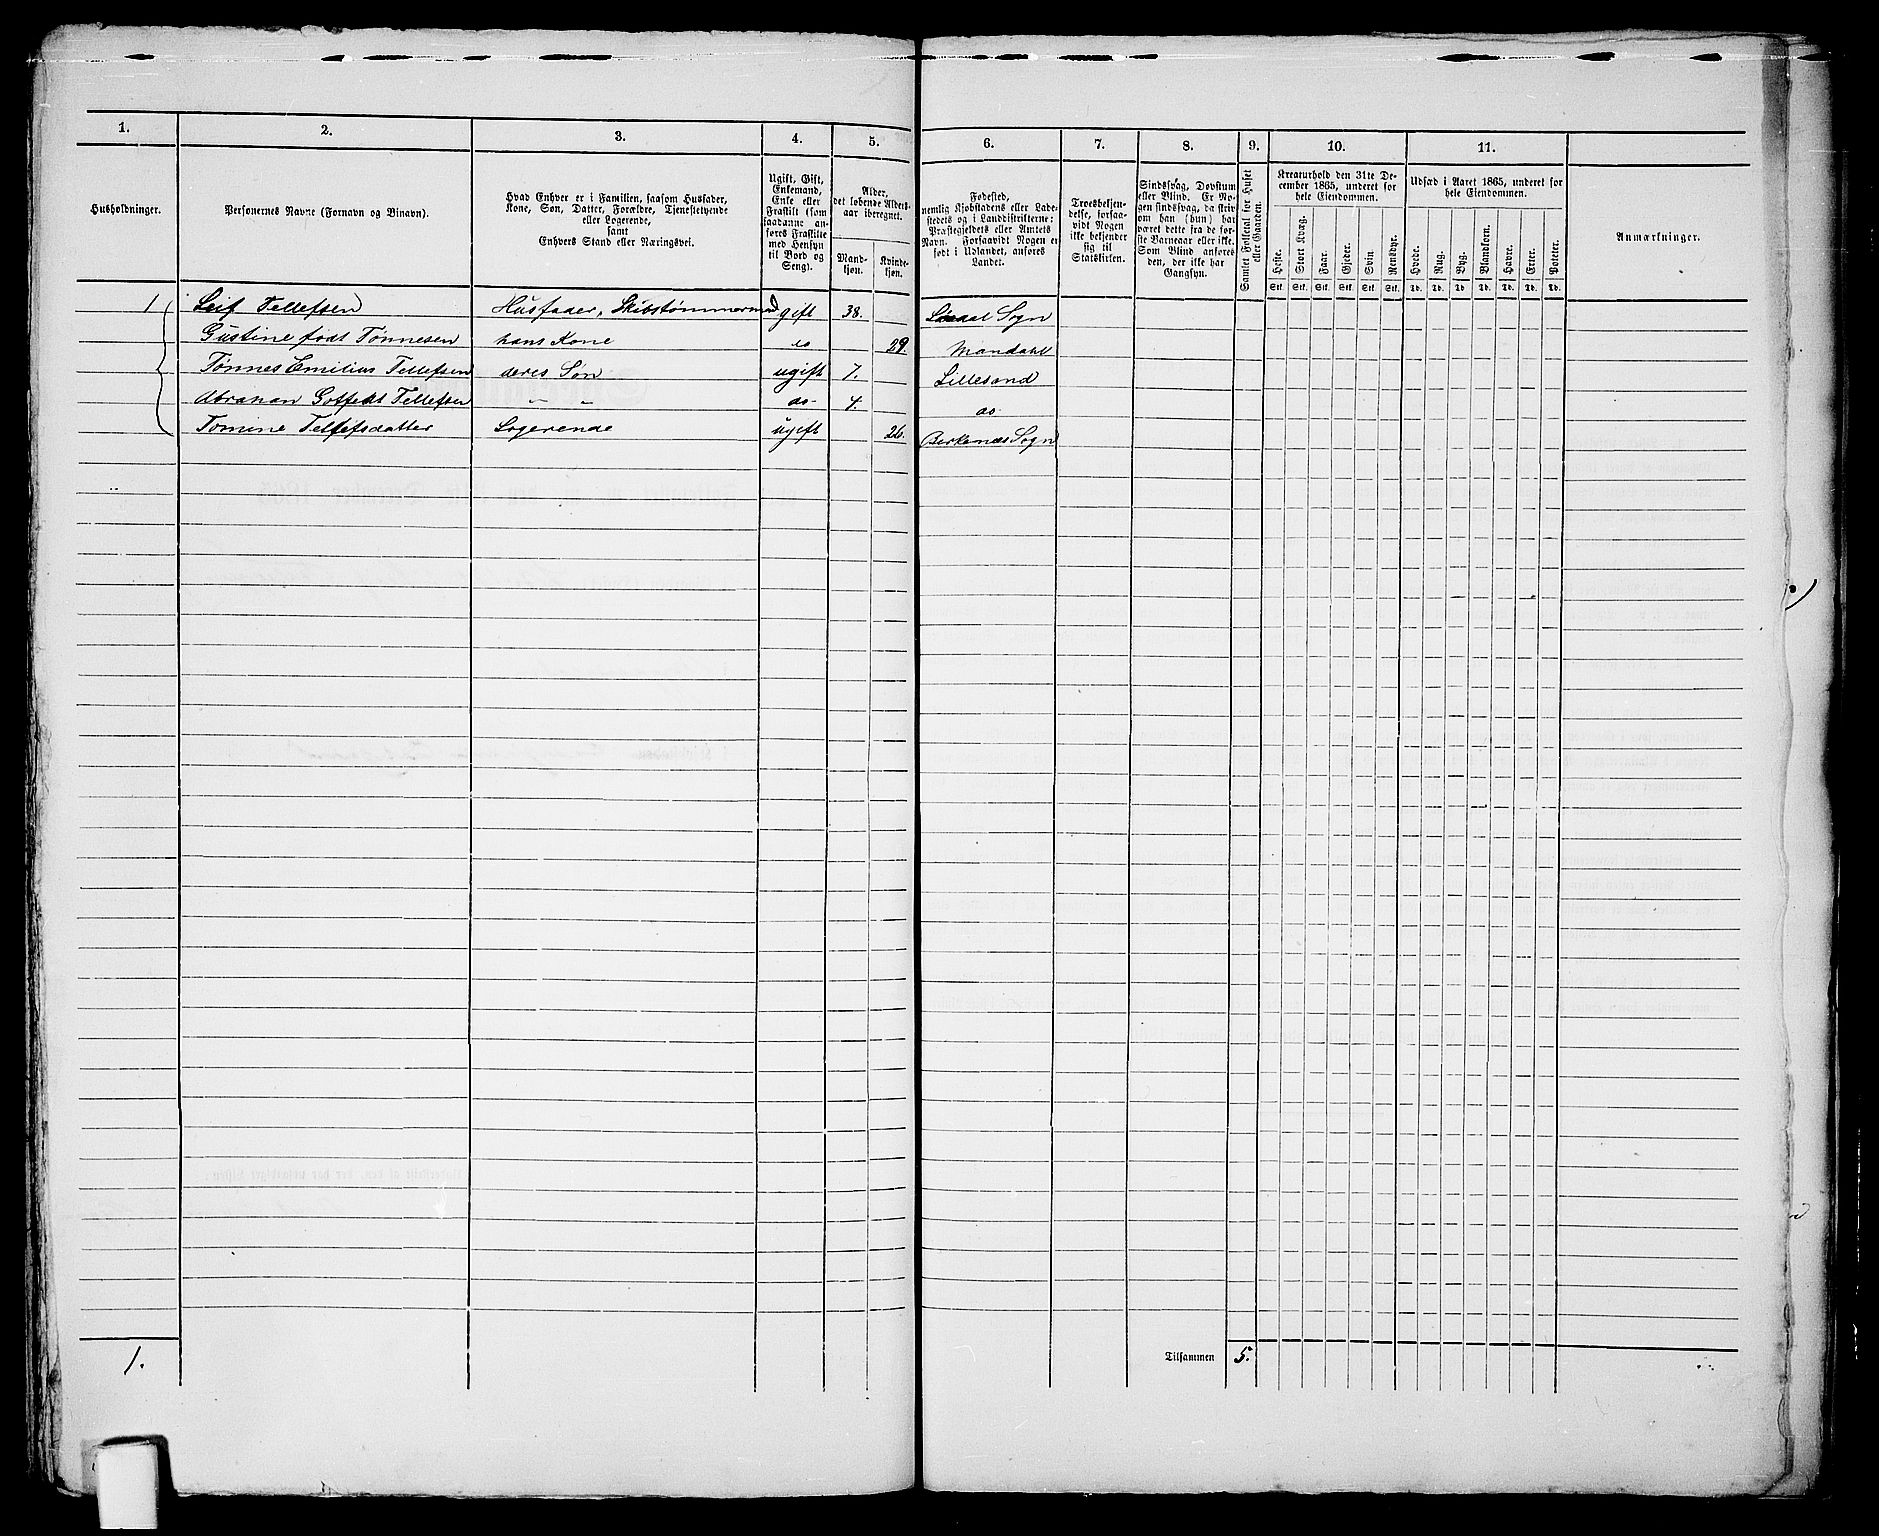 1. 2. 3. 4. 5. 6. 7. 8. 9. 10. 11.
Husholdninger.
Personernes Navne (Fornavn og Binavn).
Hvad Enhver er i Familien, saasom Husfader,
Kone, Søn, Datter, Forældre, Tjenestetyende
eller Logerende,
samt
Enhvers Stand eller Næringsvei.
Ugift, Gift,
Enkemand,
Enke eller
Fraskilt (som
saadanne an-
føres Fraskilte
med Hensyn
til Bord og
Seng).
Alder,
det løbende Alders-
aar iberegnet.
Mand-
kjøn.
Kvinde-
kjøn.
Fødested,
nemlig Kjøbstadens eller Lade-
stedets og i Landdistrikterne:
Præstegjeldets eller Amtets
Navn. Forsaavidt Nogen er
født i Udlandet, anføres
Landet.
Troesbekjen-
delse, forsaa-
vidt Nogen
ikke bekjender
sig til
Statskirken.
Sindssvag, Døvstum
eller Blind. Er No-
gen sindssvag, da skriv
om han (hun) har
været dette fra de før-
ste Barneaar eller ikke.
Som Blind anføres
den, der ikke har
Gangsyn.
Samlet Folketal for Huset
eller Gaarden.
Kreaturhold den 31te De-
cember 1865, underet for
hele Eiendommen.
Heste. Stort Kvæg. Faar. Gjeder. Svin. Rensdyr.
Stk. Stk. Stk. Stk. Stk. Stk.
Udsæd i Aaret 1865, underet for
hele Eiendommen.
Hvede. Rug. Byg. Blandkorn. Havre. Erter. Poteter.
Td. Td. Td. Td. Td. Td. Td.
Anmærkninger.
1 Leif Tellefsen Husfader, Skibstømmermand gift 38. Sogn
Gustine født Tønnesen hans Kone do 29. Mandahl
Tønnes Emilius Tellefsen deres Søn ugift 7. Lillesand
Abraham Tellefsen " " do- 4. do
Tomine Tellefsdatter Logerende ugift 26. Berkenæs Sogn
1. Tilsammen 5.